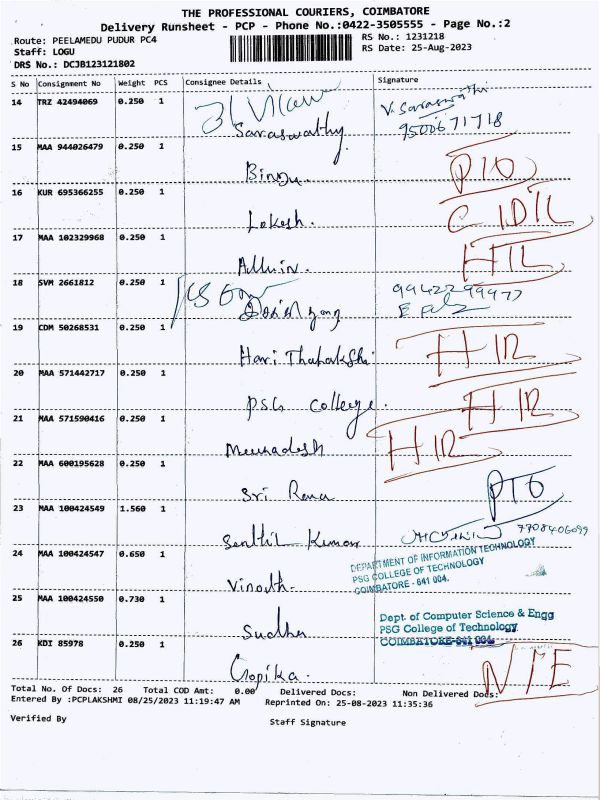 THE PROFESSIONAL COURIERS, COIMBATORE
Delivery Runsheet - PCP - Phone No.:0422-3505555 - Page No.:2
Route: PEELAMEDU PUDUR PC4
RS No.: 1231218
Staff: LOGU
RS Date: 25-Aug-2023
DRS No.: DCJB123121802
S No Consignment No Weight PCS Consignee Details Signature
14 TRZ 42494069 0.250 1
V. Saraswathi
Saraswathy 9500671718
15 MAA 944026479 0.250 1
Bindu. PTO
16 KUR 695366255 0.250 1
Lokesh.
17 MAA 102329968 0.250 1
18 SVM 2661812 0.250 1
9942299977
19 CDM 50268531 0.250 1
Hari
20 MAA 571442717 0.250 1
PSG College.
21 MAA 571590416 0.250 1
22 MAA 600195628 0.250 1
Sri Rama PTO
23 MAA 100424549 1.560 1
Senthil Kumar 7708406099
24 MAA 100424547 0.650 1
DEPARTMENT OF INFORMATION TECHNOLOGY
PSG COLLEGE OF TECHNOLOGY
COIMBATORE - 641 004.
Vinoth.
25 MAA 100424550 0.730 1
Dept. of Computer Science & Engg
PSG College of Technology
COIMBATORE-641 004.
Sudha
26 KDI 85978 0.250 1
Gopika. N/E
Total No. Of Docs: 26 Total COD Amt: 0.00 Delivered Docs: Non Delivered Docs:
Entered By :PCPLAKSHMI 08/25/2023 11:19:47 AM Reprinted On: 25-08-2023 11:35:36
Verified By Staff Signature